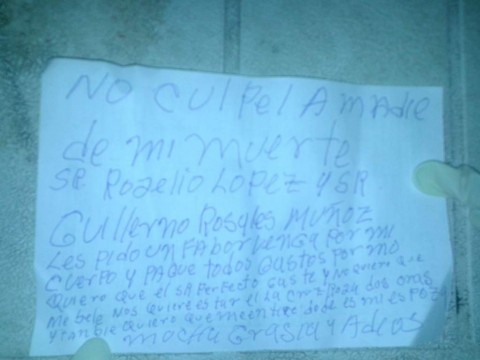 NO CulpelA mADie
de mi muerte
SR. Rogelio Lopez Y SR
Gullerno Rosales Muñoz
Les Pido un FAbor VENGA POR mi
CUERPO Y PAQUE todos GAStos POR MO
Quiero que el SR PerFecto GASte Y No quiero que
Me bele NOS quiere estar el LA Cruz Roja dos oras
Y tanbie quiero que me entire dode es mi esPoza
Mocha Grasia Y Adios